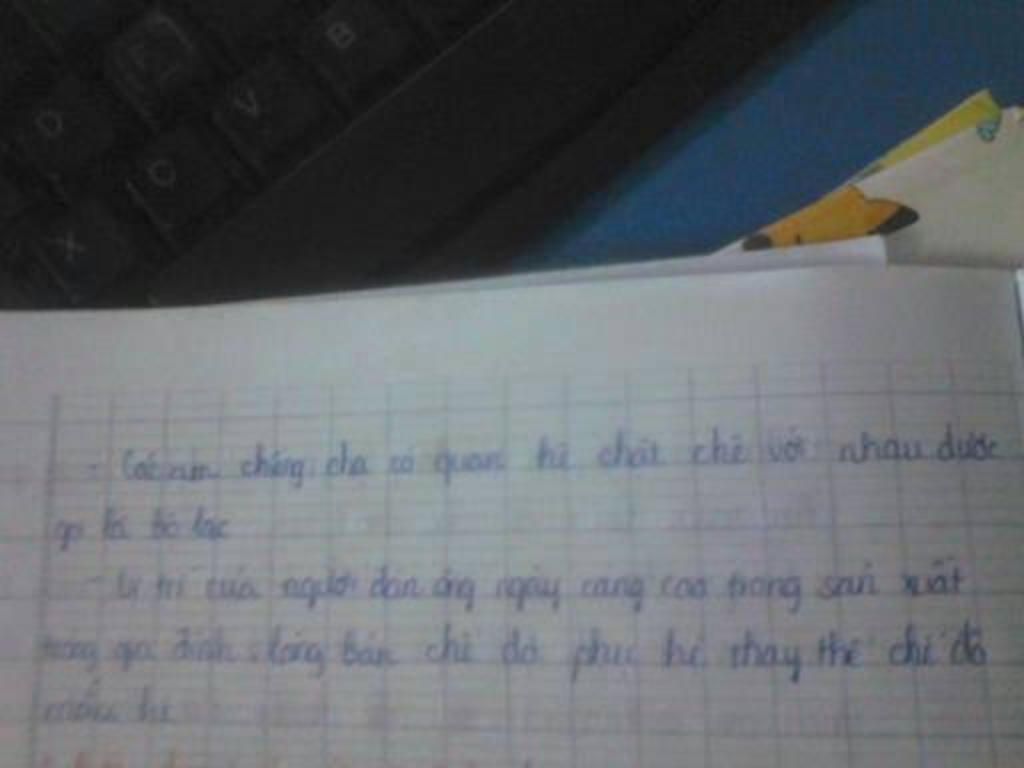 D F C V B X
- Các cụm chiềng, chạ có quan hệ chặt chẽ với nhau được
gọi là bộ lạc
- Vị trí của người đàn ông ngày càng cao trong sản xuất
trong gia đình, làng bản chế độ phụ hệ thay thế chế độ
mẫu hệ